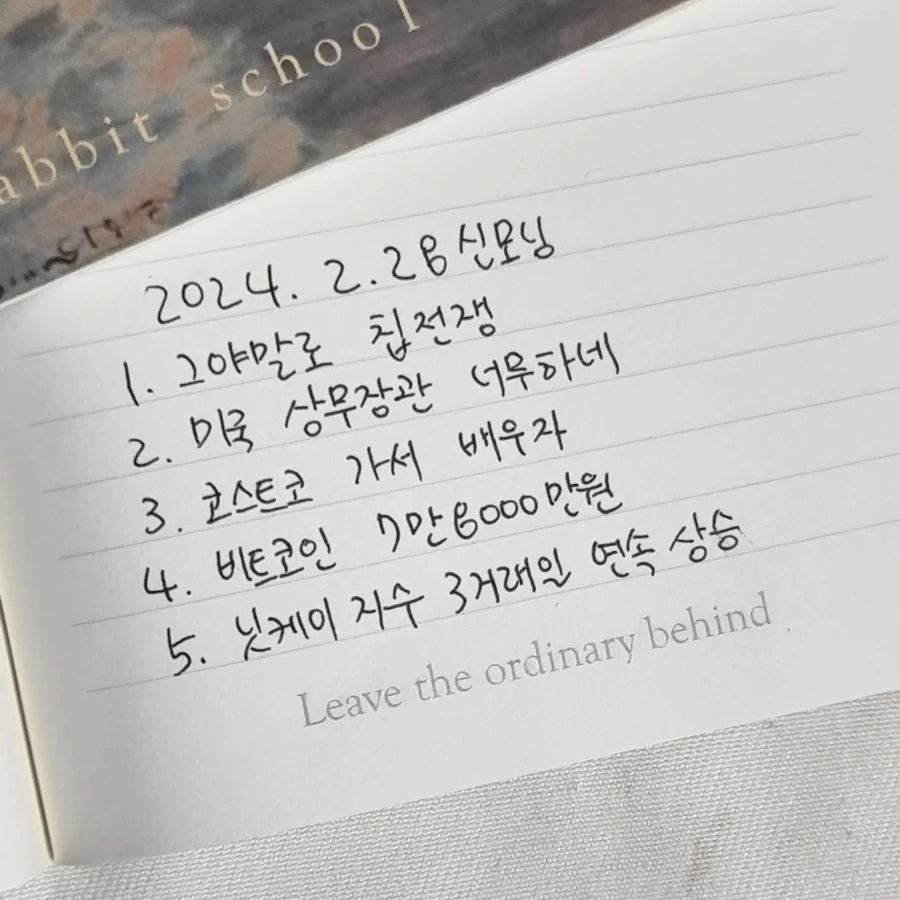 abbit school
2024. 2. 28 신모닝
1. 그야말로 칩전쟁
2. 미국 상무장관 너무하네
3. 코스트코 가서 배우자
4. 비트코인 7만8000만원
5. 닛케이 지수 3거래일 연속 상승
Leave the ordinary behind